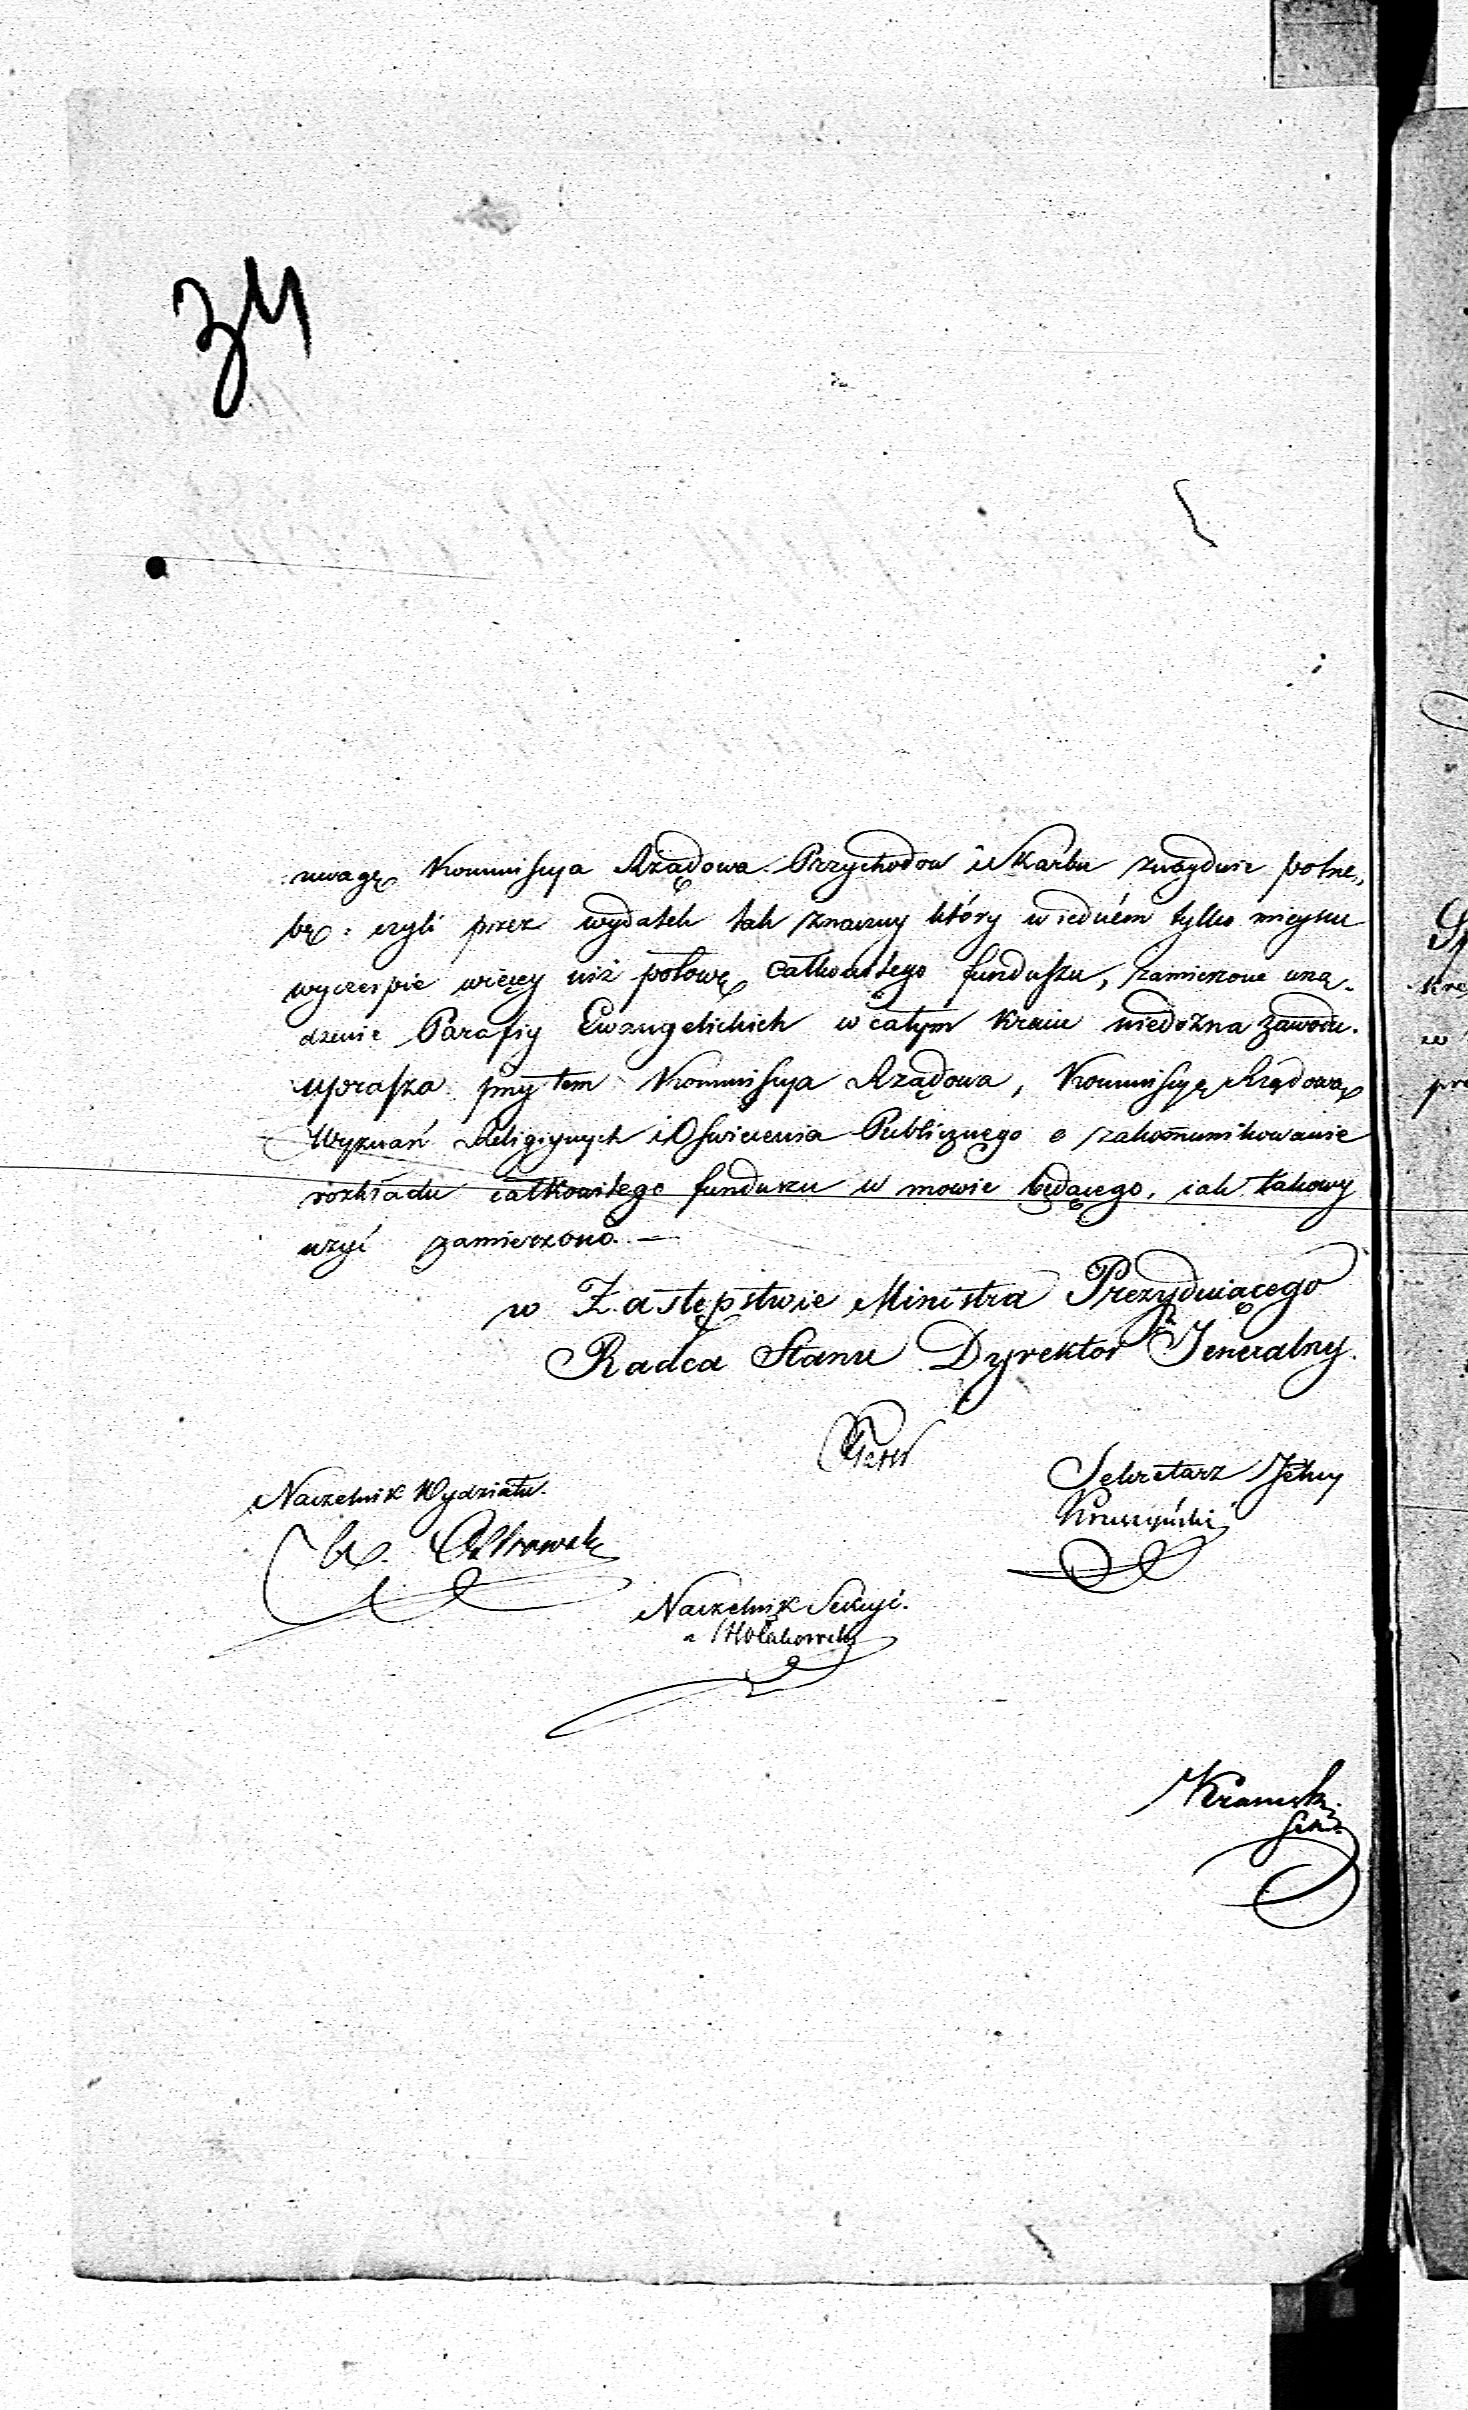 34
uwagę Kommissya Rządowa Przychodow i Skarbu znayduie potrze„
bę: czyli przez wydatek tak znaczny który w iedném tylko mieyscu
wyczerpie więcey niż połowę całkowitego funduszu, zamierzone urzą-
dzenie Parafiy Ewangelickich w całym Kraiu niedozna zawodu.
uprasza przytem Kommissya Rządowa, Kommissyę Rządową
Wyznań Religiynych i Oświecenia Publicznego o zakommunikowanie
rozkładu całkowitego funduszu w mowie będącego, iak takowy
użyć zamierzono. —
w Zastępstwie Ministra Prezyduiącego
Radca Stanu Dyrektor Jeneralny.
Sekretarz Jlny
Naczelnik Wydziału.
Kruszyński
Naczelnik Sekcyi.